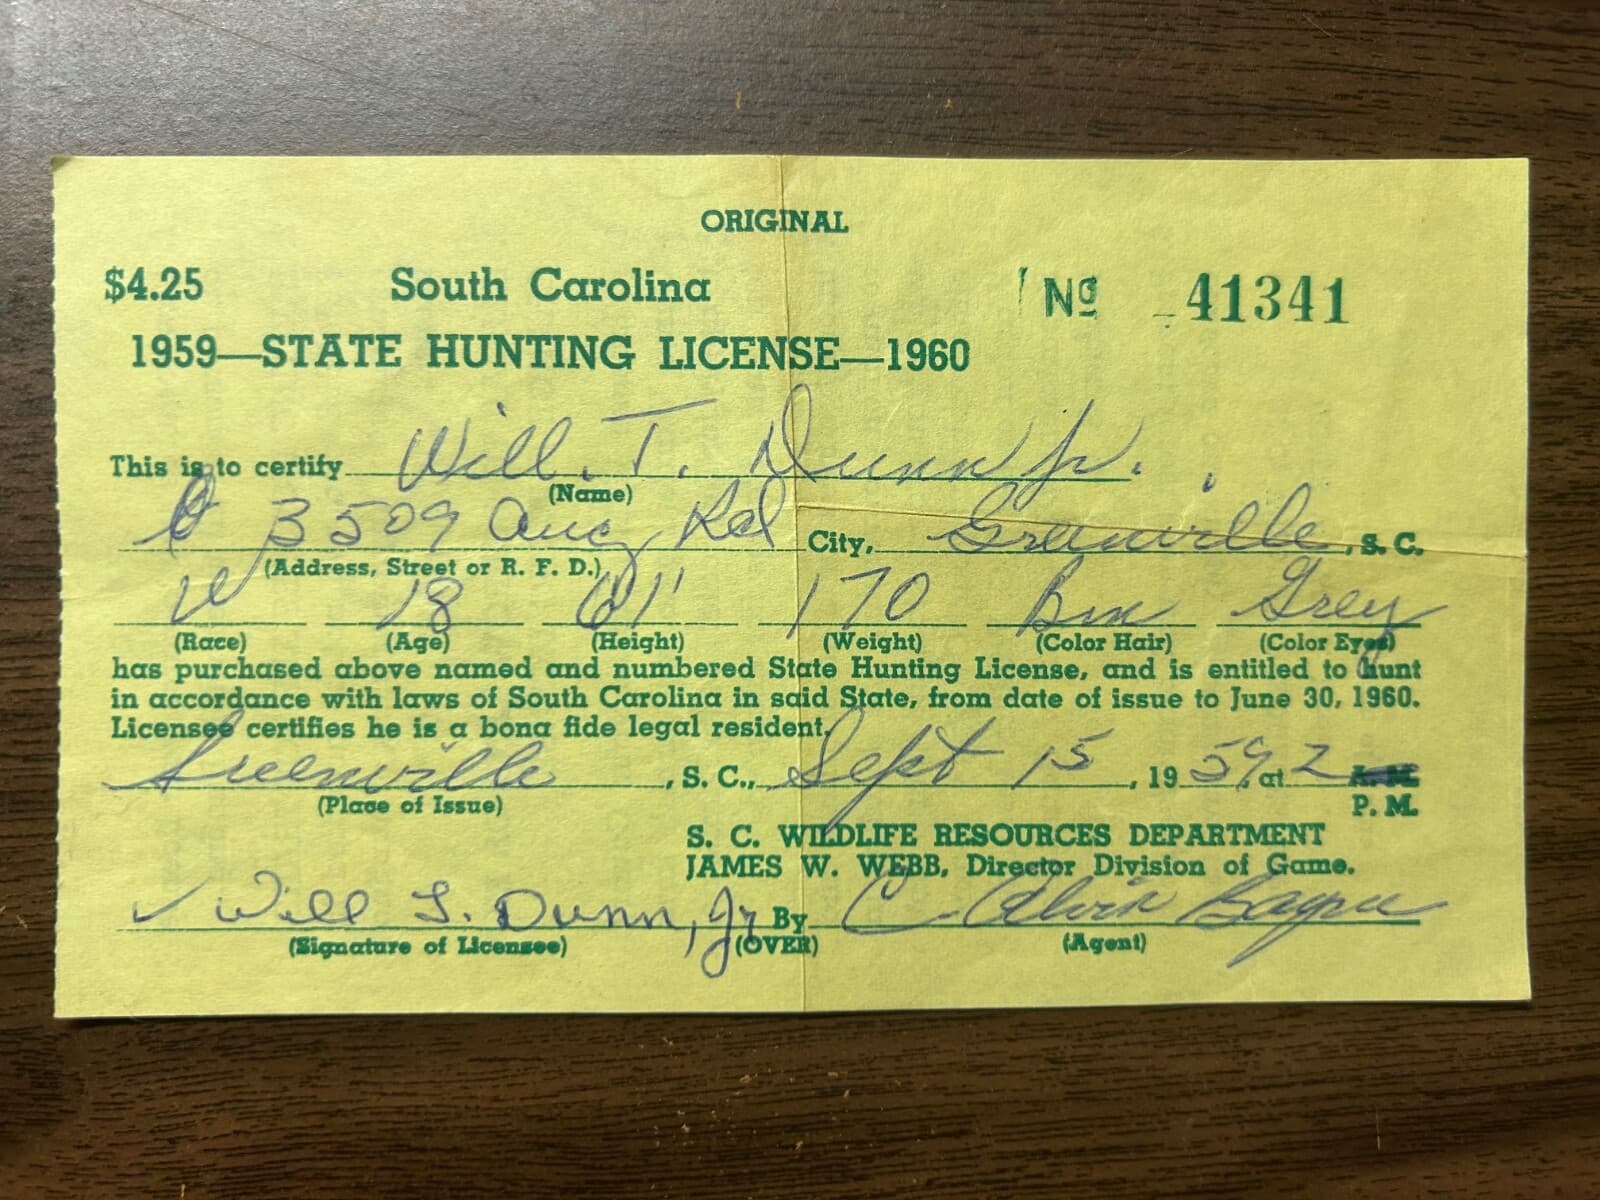 ORIGINAL
$4.25 South Carolina Nº 41341
1959—STATE HUNTING LICENSE—1960
This is to certify Will. T. Dunn Jr.
(Name)
3509 Aug Rd City, Greenville, S. C.
(Address, Street or R. F. D.)
W 18 6'1" 170 Brn Grey
(Race) (Age) (Height) (Weight) (Color Hair) (Color Eyes)
has purchased above named and numbered State Hunting License, and is entitled to hunt
in accordance with laws of South Carolina in said State, from date of issue to June 30, 1960.
Licensee certifies he is a bona fide legal resident.
Greenville, S. C., Sept 15, 1959, at 2 A. M.
(Place of Issue) P. M.
S. C. WILDLIFE RESOURCES DEPARTMENT
JAMES W. WEBB, Director Division of Game.
Will T. Dunn, Jr By C. Alvin
(Signature of Licensee) (OVER) (Agent)